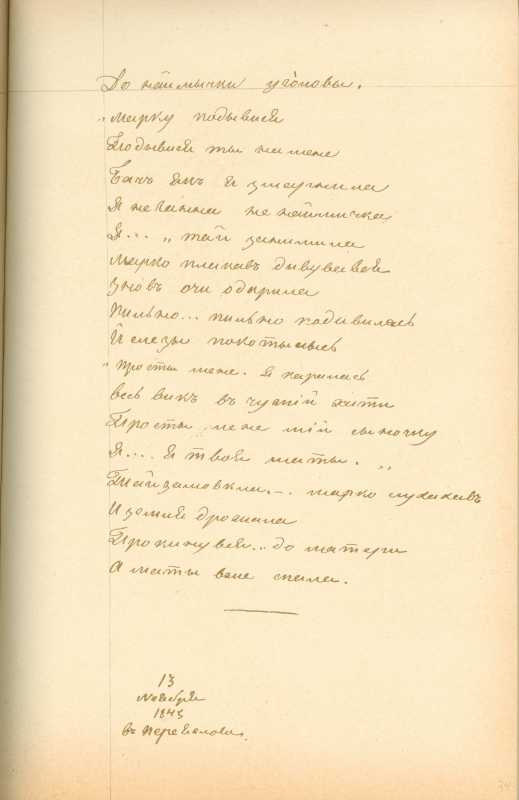 До наймычки уголовы.
"Марку подывися
Подывися ты на мене
Бачъ якъ я змарнила
Я не Ганна не наймичка
Я... " тай занимила
Марко плакавъ дывувався
Зновъ очи одкрила
Пильно... пильно подивилась
Й слезы покотылысь
"Просты мене. Я каралась
весь викъ въ чужій хати
Просты мене мій сыночку
Я.... Я твоя маты. "
Тай замовкла.-. Марко
И земля дрожала
Прокинувся... до матери
А маты вже спала.
13
Ноября
1845
въ Переяслови.